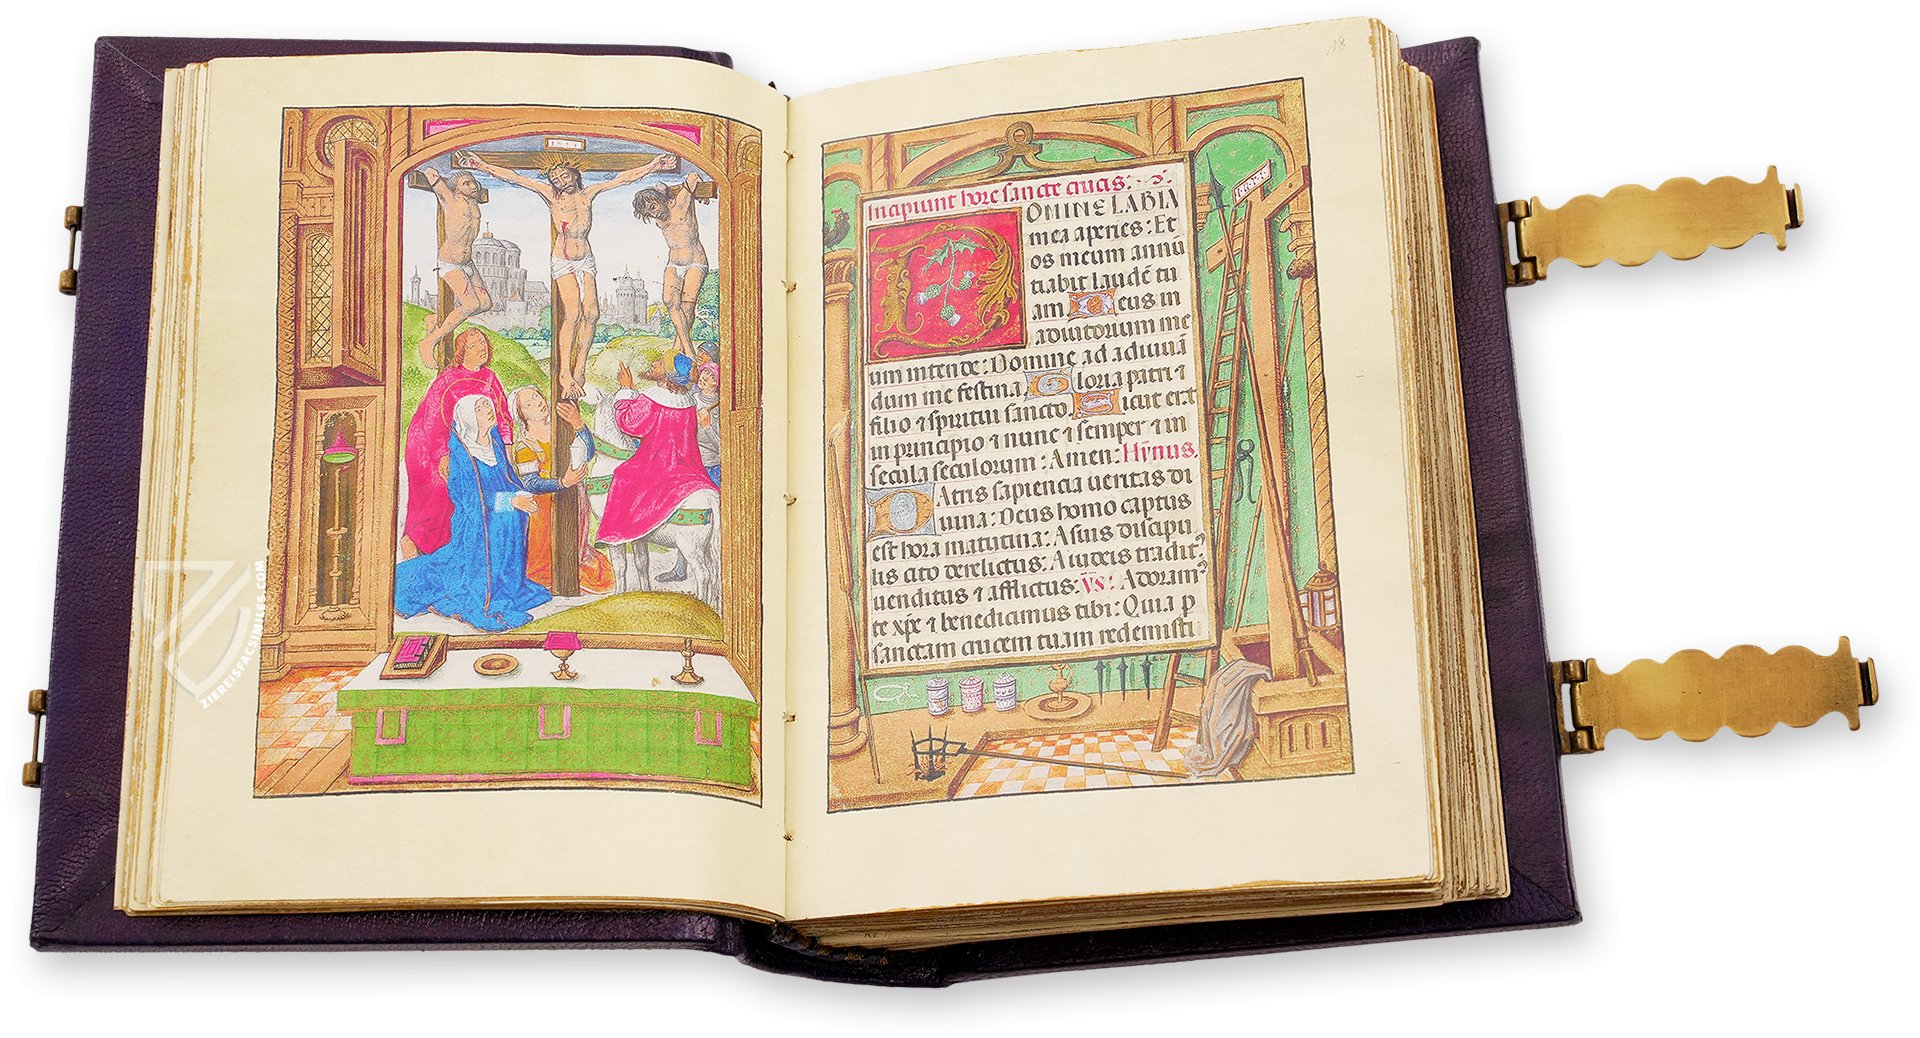 INRI
18
Incipiunt hore sancte crucis:
DOMINE LABIA
mea aperies: Et
os meum annu
tiabit laudē tu
am Deus in
adiutorium me
um intende: Domine ad adiuuā
dum me festina Gloria patri ⁊
filio ⁊ spiritui sancto. Sicut erat
in principio ⁊ nunc ⁊ semper ⁊ in
secula seculorum: Amen: Hȳnus.
PAtris sapiencia ueritas di
uina: Deus homo captus
est hora matutina: A suis discipu
lis cito derelictus: A iudeis tradit⁹
uenditus ⁊ afflictus: V̄s: Adoram⁹
te xp̄e ⁊ benedicimus tibi: Quia p
sanctam crucem tuam redemisti
ZIEREISFACSIMILES.COM